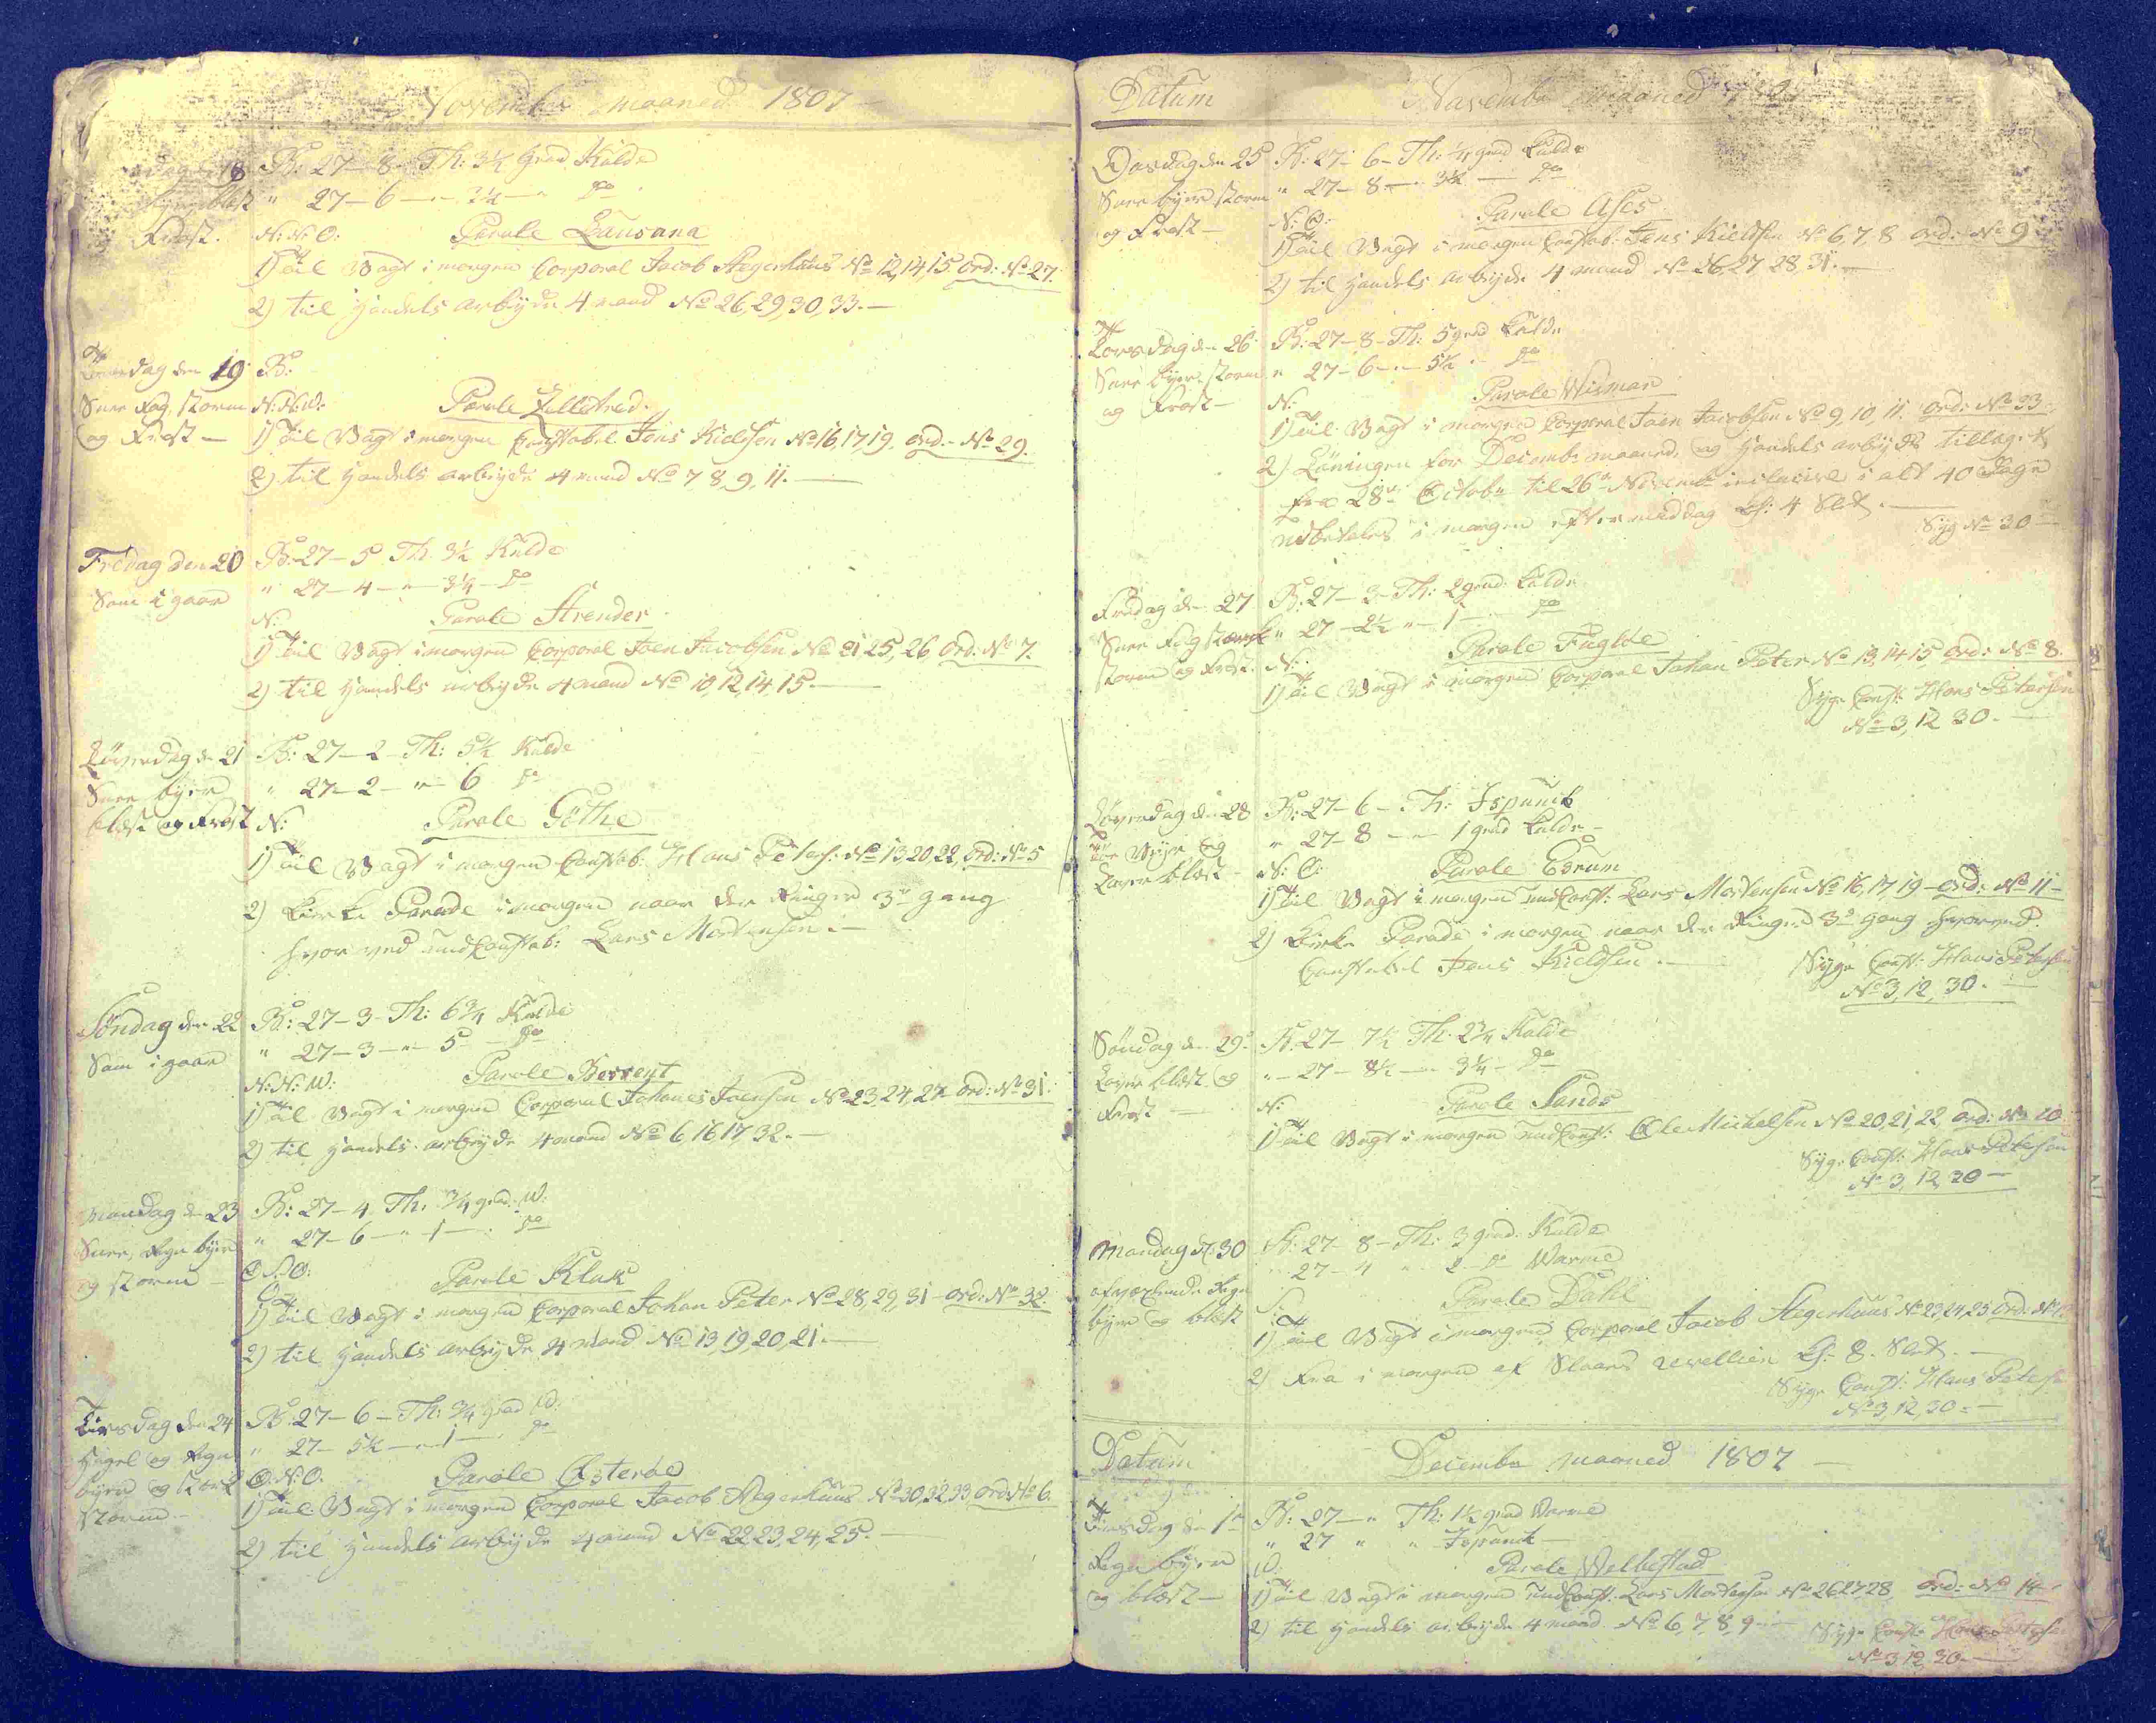 November maaned 1807
18 B: 27-8- Th: 3½ Grad Kulde
" 27-6 - " - 2½ - " do
Frost. N:N:O: Parole Lausana
1) Til Vagt i morgen Corporal Jacob Aegershuus No 12,14,15. Ord: No 27.
2) til Handels arbejde 4 mand No 26,29,30,33.-
Torsdag den 19 B:
Snee Fog, storm N:N:W: Parole
og Frost - 1) Til Vagt i morgen Constabel Jens Kieldsen No 16,17,19. Ord:- No 29.
2) til Handels arbejde 4 mand No 7,8,9,11.-
Fredag den 20 B: 27-5 Th. 3½ Kulde
Som i gaar " 27-4 - " - 3¼ - do
N: Parole Strender
1) Til Vagt i morgen Corporal Joen Jacobsen No 21,25,26 Ord: No 7.
2) til Handels arbejde 4 mand No 10,12,14,15.-
Løverdag d. 21 B: 27-2- Th: 5½ Kulde
Snee byer " 27-2- " - 6 do
blæst og Frost N: Parole Göthe
1) Til Vagt i morgen Constab: Hans Peters: No 13,20,22, Ord: No 5
2) Kirke Parade i morgen naar der Ringer 3de gang
hvor ved undConstab: Lars Mortensen.-
Søndag den 22 B: 27-3- Th: 6¾ Kulde
Som i gaar " 27-3 - " - 5 - do
N:N:W: Parole Berreyt
1) Til Vagt i morgen Corporal Johanes Joensen No 23,24,27. Ord: No 31.
2) til Handels arbejde 4 mand No 6 16 17 32.-
Mandag d. 23 B: 27-4 Th. ¾ grad: W:
Snee, Regn byer " 27-6 - " - 1 - do
og storm - O.S.O: Parole Kluk
1) til Vagt i morgen Corporal Johan Peter No 28,29,31 - Ord: No 32.
2) til Handels arbejde 4 mand No 13,19,20,21.-
Tirsdag den 24 B: 27-6- Th: ¾ grad W:
Hagel og Regn " 27-5½ - " - 1 - do
byer og stærk O.N.O. Parole Østerøe
storm - 1) Til Vagt i morgen Corporal Jacob Aegershuus No 30,32,33 Ord: No 6.
2) til Handels arbejde 4 mand No 22,23,24,25.-
Datum November maaned
Onsdag den 25 B: 27-6- Th: ¼ grad Kulde
Snee byer storm " 27-8 - 3½ - do
og Frost - N:O: Parole Ases
1) Til Vagt i morgen Constab: Jens Kieldsen No 6,7,8 Ord: No 9
2) til Handels arbejde 4 mand No 26,27 28,31.-
Torsdag den 26 B: 27-8- Th: 5 grad Kulde
Snee byer storm " 27-6 - " - 5½ - do
og Frost - N: Parole Wismar
1) Til Vagt i morgen Corporal Joen Jacobsen No 9,10,11. Ord: No 33
2) Løningen for Decemb: maaned, og Handels arbejds tillag.
fra 28de Octobr til 26de Novembr inclusive i alt 40 Dage
udbetales i morgen eftermiddag Kl: 4 Slet.-
Syg No 30
Fredag den 27 B: 27-3- Th: 2 grad: Kulde
Snee Fog stærk " 27-2½ " - 1 - do
storm og Frost. N: Parole Fuglde
1) Til Vagt i morgen Corporal Johan Peter No 13,14,15 Ord: No 8.
Syge Const: Hans Petersen
No 3,12 30.-
Løverdag d. 28 B: 27-6- Th: Ispunct
Tør Vejr og " 27-8 - " - 1 grad Kulde -
blæst - N:O: Parole Edrum
1) Til Vagt i morgen undConst: Lars Mortensen No 16,17,19 - Ord: No 11 -
2) Kirke Parade i morgen naar der Ringer 3de gang hvorved
Constabel Jens Kieldsen.- Syge Const: Hans Petersen
No 3,12,30.
Søndag d. 29 B: 27-7½ Th: 2¾ Kulde
blæst og " - 27-8½ - " - 3¼ - do
Frost - N: Parole Sands
1) Til Vagt i morgen undConst: Ole Michelsen No 20,21,22 Ord: No 10
Syge Const: Hans Petersen
No 3,12,30 -
Mandag d: 30 B: 27-8- Th: 3 grad. Kulde
Regn " 27-4 " 2 do Warme
byer og blæst S: Parole Dahl
1) Til Vagt i morgen Corporal Jacob Aegershuus No 23,24,25 Ord: No
2) Fra i morgen af Slaaes revellien Kl: 8 Slet.-
Syge Const: Hans Peters
No 3,12,30.-
Datum December maaned 1807 -
Tirsdag den 1de B: 27 - " Th: 1½ grad Warme
" 27 " " Ispunct -
Regn byer W: Parole Welbestad
og blæst - 1) Til Vagt i morgen undConst: Lars Mortensen No 26,27,28, Ord: No 14
2) til Handels arbejde 4 mand No 6,7,8,9 - Syge Const: Hans Petersen
No 3,12,30.-